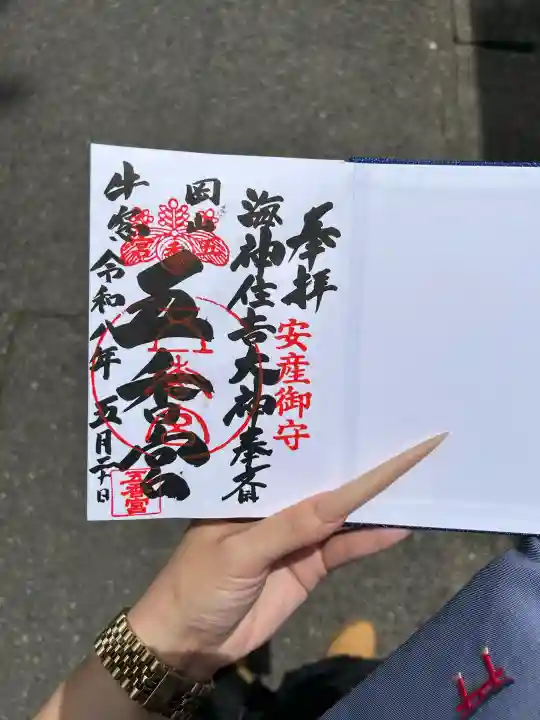 奉拝
安産御守
海神住吉大神奉斎
岡山
五香宮
牛窓
令和八年 五月二十日
五香宮